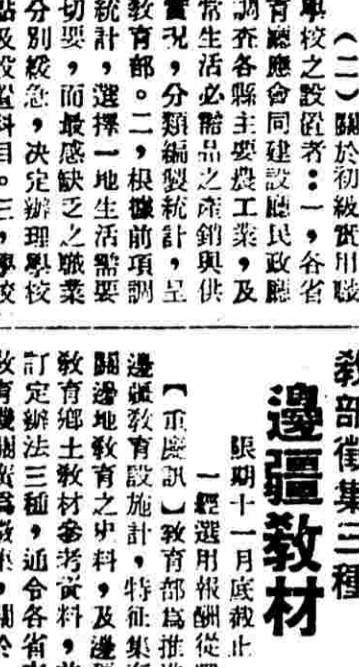 學校之設置者：一，各省
（二）關於初級實用職
育廳應會同建設廳民政廳
調查各縣主要農工業，及
常生活必需品之產銷與供
實况，分類編製統計，呈
教育部。二，根據前項調
統計，選擇一地生活需要
切要，而最感缺乏之職業
分別緩急，决定辦理學校
點及設置科目。三，學校
教部徵集三種
邊疆教材
展期十一月底截止
一經選用報酬從
【重慶訊】教育部爲推進
邊疆教育設施計，特征集
關邊地教育之史料，及邊疆
教育鄉土教材參考資料，
訂定辦法三種，通令各省